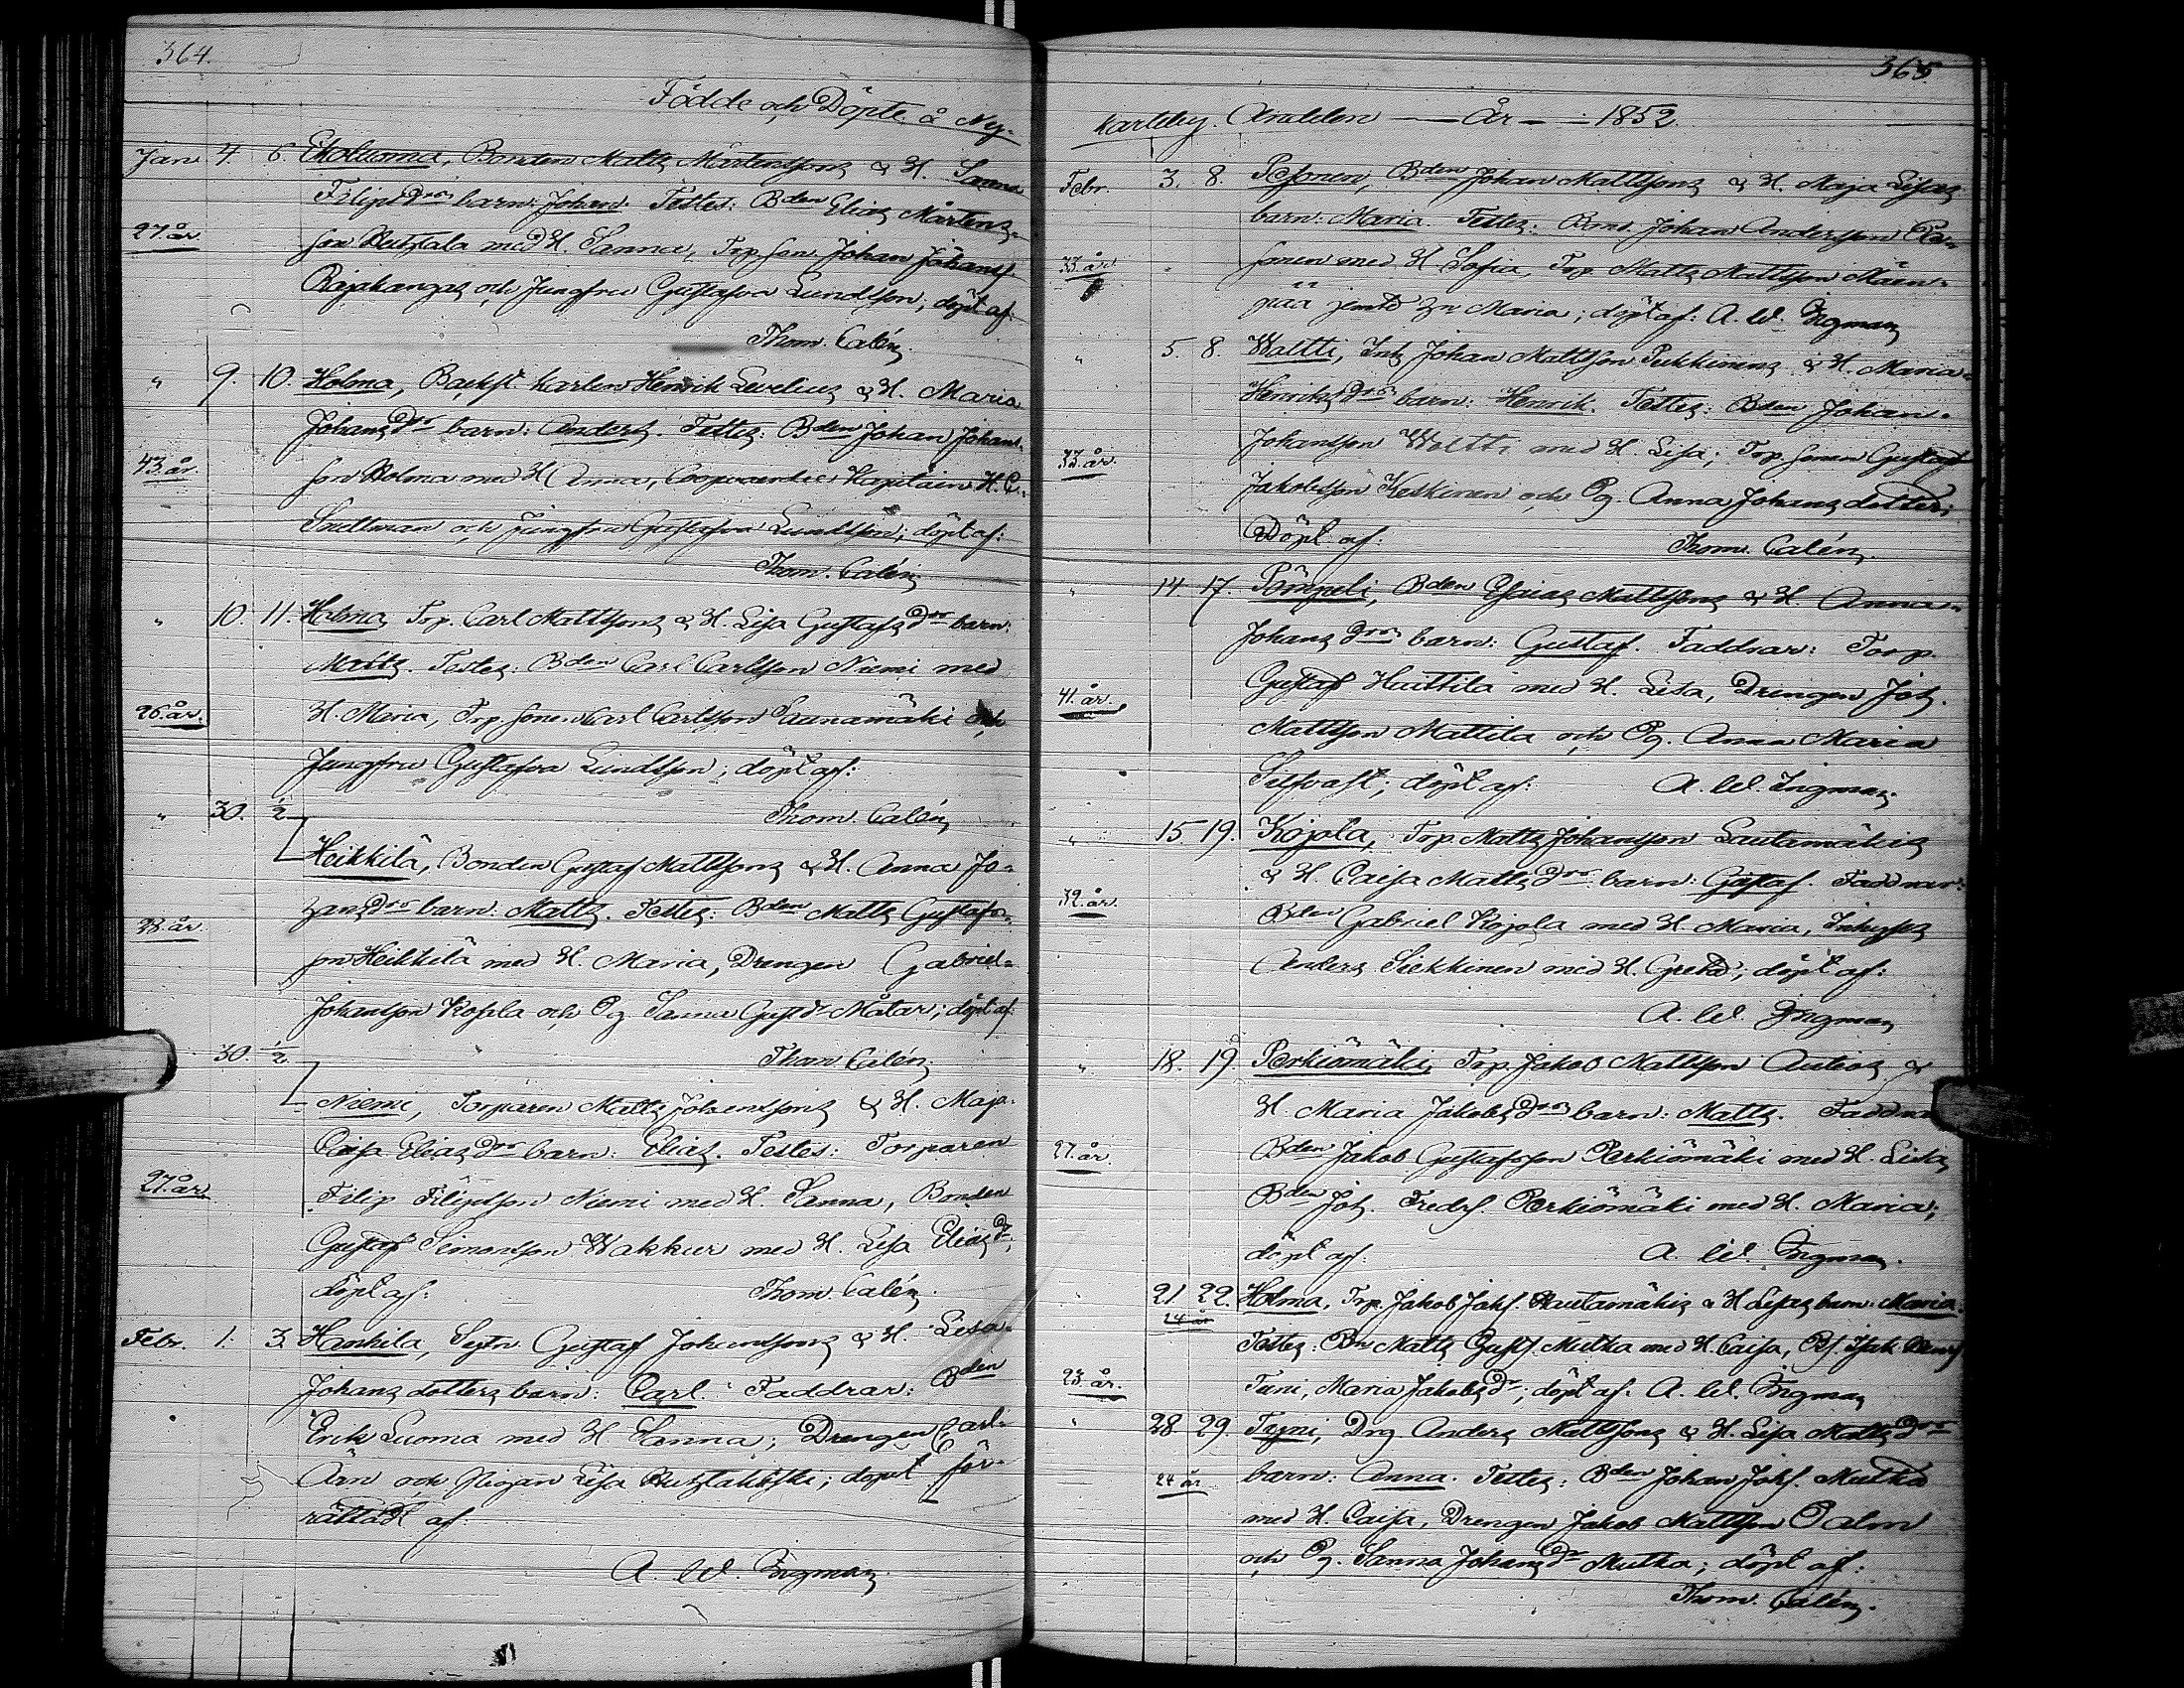 364.
Födde och Döpte å Ny-
Jan. 4. 6. Ekoluoma, Bonden Matts Mårtenssons & H. Sanna
Filips Dtrs barn: Johan. Testes: Bden Elias Mårtens-
27. år. son med H. Sanna, Torp. son Johan Johanss.
Rajakangas och Jungfru Gustafva Lundsson; döpt af:
Thom. Calén
" 9. 10. Holma, Backst. karlen Henrik Levelius & H. Maria
Johans Dtrs barn: Anders. Testes: Bden Johan Johans-
43. år. son Holma med H. Anna, Coopvaerdie Kapitain H. C.
och Jungfru Gustafva Lundsson; döpt af:
Thom. Calén
" 10. 11. Holma, Torp. Carl Mattssons & H. Lisa Gustafs Dtrs barn:
Matts. Testes: Bden Carl Carlsson Niemi med
26. år. H. Maria, Torp. sonen Carl Carlsson Saunamäki och
Jungfru Gustafva Lundsson; döpt af:
" 30. 1/2 Thom. Calén
Heikkilä, Bonden Gustaf Mattssons & H. Anna Jo-
hans Dtrs barn: Matts. Testes: Bden Matts Gustafs-
38. år. son Heikkilä med H. Maria, Drengen Gabriel
Johansson Kojola och Pg. Sanna Gust. dr Måtar; döpt af:
30. 1/2 Thom Calén
Niemi, Torparen Matts Johanssons & H. Maja
Caisa Elias Dtrs barn: Elias. Testes: Torparen
27. år. Filip Filipsson Niemi med H. Sanna, Bonden
Gustaf Simonsson Wakkur med H. Lisa Elias dr;
döpt af: Thom. Calén.
Febr. 1. 3. Hankila, Sytn. Gustaf Johanssons & H. Lisa
Johans dotters barn: Carl. Faddrar: Bden
Erik Luoma med H. Sanna; Drengen Carl
Ärn och Pigan Lisa; döpet för-
rättadt af:
A. W. Ingman.
365.
Karleby. Andelen — År — 1852.
Febr. 3. 8. Pesonen, Bden Johan Mattssons & H. Maja Lisas
barn: Maria. Testes: Bond. Johan Andersson Pe-
33. år. sonen med H. Sofia, Torp. Matts Mattsson Mäen-
pää jemte hu Maria; döpt af: A. W. Ingman
" 5. 8. Waltti, Inh. Johan Mattsson Pekkinens & H. Maria
Henriks Dtrs barn: Henrik. Testes: Bden Johan
33. år. Johansson Waltti med H. Lisa; Torp. sonen Gustaf
Jakobsson Keskinen och Pg. Anna Johans dotter;
Döpt af: Thom. Calén.
" 14. 17. Pömpeli, Bden Esaias Mattssons & H. Anna
Johans Dtrs barn: Gustaf. Faddrar: Torp.
41. år. Gustaf Huittila med H. Lisa, Drengen Joh.
Mattsson Mattila och Pg. Anna Maria
Selfvast; döpt af: A. W. Ingman.
" 15. 19. Kojola, Torp. Matts Johansson Lautamäkis
& H. Caisa Matts Dtrs barn: Gustaf. Faddrar:
39. år. Bden Gabriel Kojola med H. Maria, Inhyses
Anders Siekkinen med H. Greta; döpt af:
A. W. Ingman
" 18. 19. Perkiömäki, Torp. Jakob Mattsson Autios &
H. Maria Jakobs Dtrs barn: Matts. Faddrar
27. år. Bden Jakob Gustafsson Perkiömäki med H. Lisa,
Bden Joh. Fredrs. Perkiömäki med H. Maria;
döpt af: A. W. Ingman.
" 21 22. Holma, Torp. Jakob Jakss. Rautamäkis & H. Lisas barn: Maria.
24 år Testes: Bn Matts Gusts. Mutka med H. Caisa, Bs. Isak
23. år. Tuni, Maria Jakobs Dr; döpt af: A. W. Ingman
" 28 29. Tyni, Drg. Anders Mattssons & H. Lisa Matts Dtrs
24 år barn: Anna. Testes: Bden Johan Johs. Mutka
med H. Caisa, Drengen Jakob Mattsson Palm
och Pg. Sanna Johans Dr Mutka; döpt af:
Thom. Calén.